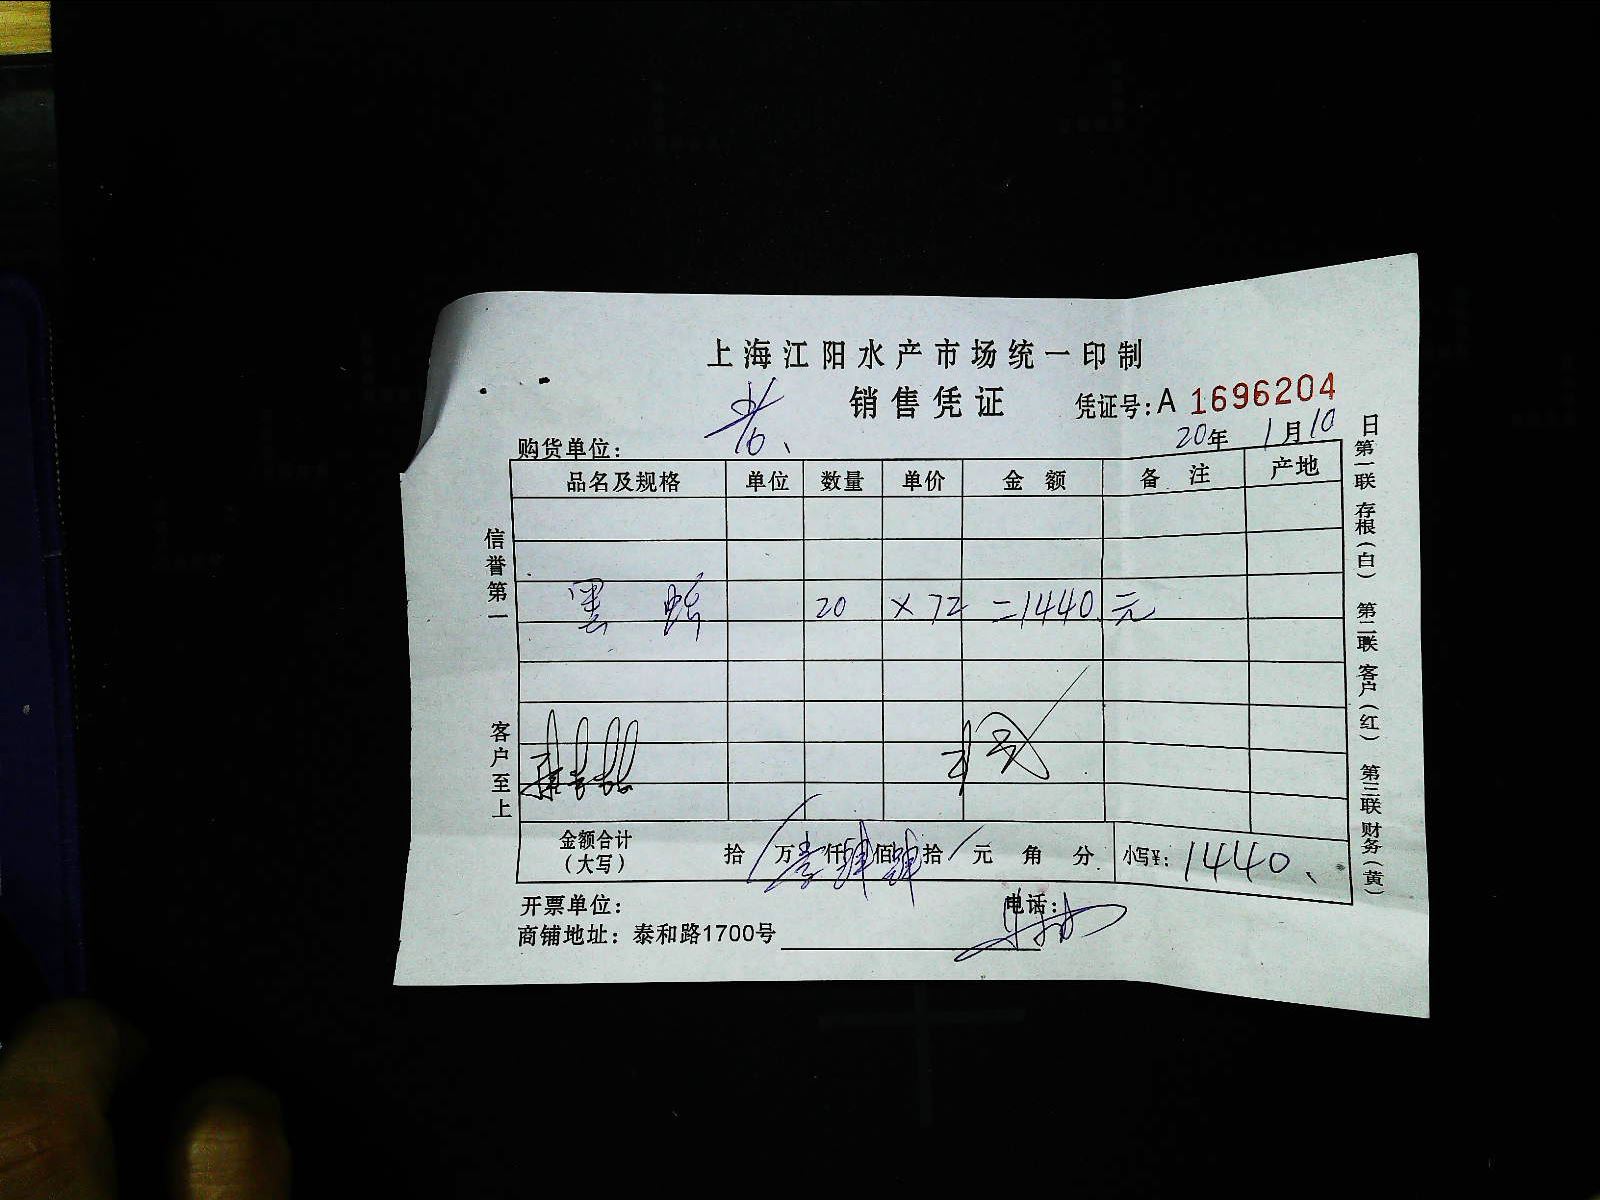 上海江阳水产市场统一印制
销售凭证 凭证号:A 1696204
购货单位: 20年 1月10日
品名及规格 单位 数量 单价 金额 备注 产地
黑 20 ×72 =1440.元
金额合计(大写) 拾 万壹仟肆佰肆拾 元 角 分 小写¥: 1440、
开票单位: 电话:
商铺地址: 泰和路1700号
信誉第一 客户至上
第一联 存根(白) 第二联 客户(红) 第三联 财务(黄)